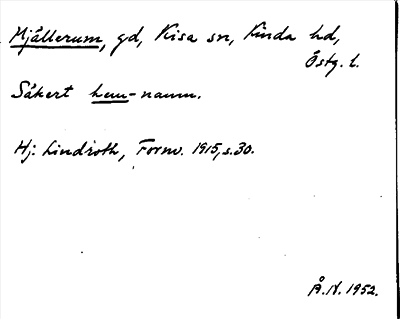 Mjällerum, gd, Kisa sn, Kinda hd,
Östg. l.
Säkert hem-namn.
Hj. Lindroth, Fornv. 1915, s. 30.
Å. N. 1952.